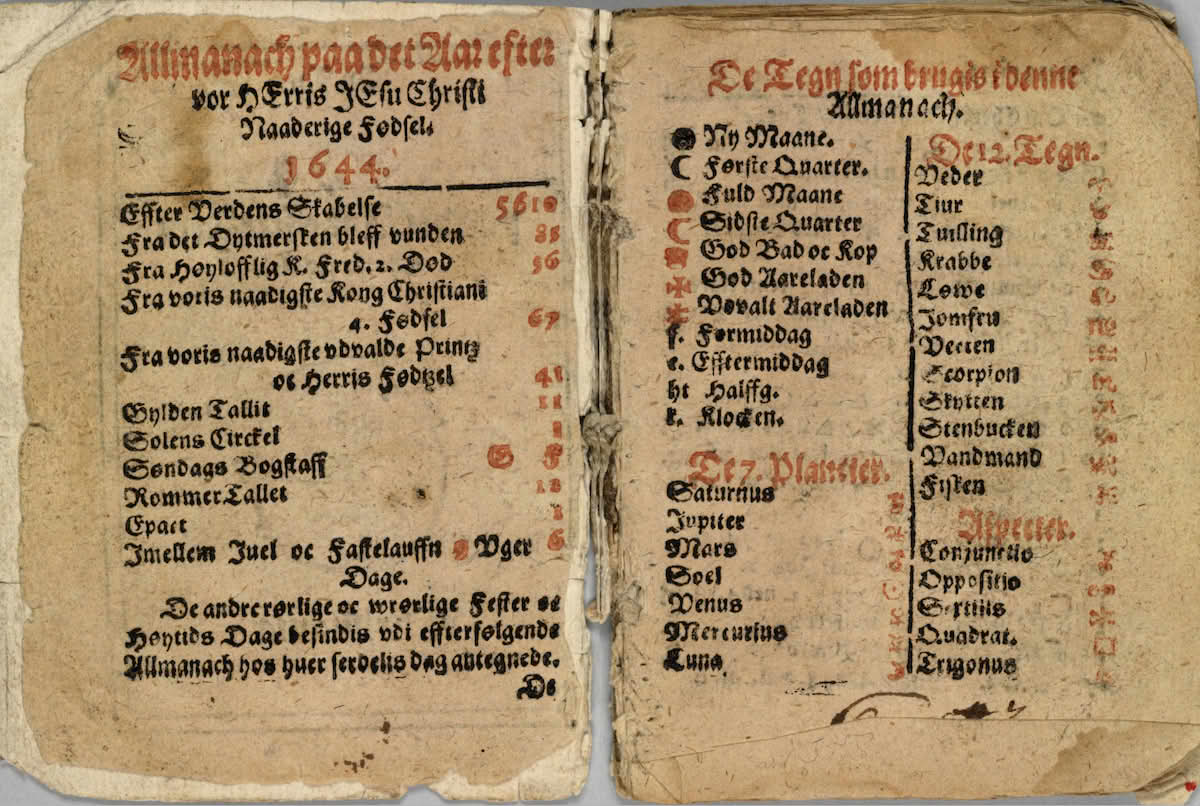 Allmanach paa det Aar efter
vor HErris JEsu Christi
Naaderige Fødsel.
1644.
Effter Verdens Skabelse 5610
Fra det Dytmersken bleff vunden 85
Fra Høylofflig K. Fred. 2. Død 56
Fra voris naadigste Kong Christiani
4. Fødsel 67
Fra voris naadigste vdvalde Printz
oc Herris Fødtzel 41
Gylden Tallit 11
Solens Circkel 1
Søndags Bogstaff G F
Rommer Tallet 12
Epact 1
Imellem Juel oc Fastelauffn 9 Vger 6
Dage.
De andre rørlige oc wrørlige Fester oc
Høytids Dage befindis vdi effterfølgende
Allmanach hos huer serdelis dag antegnede.
De
De Tegn som brugis i denne
Allmanach.
Ny Maane.
Første Quarter.
Fuld Maane
Sidste Quarter
God Bad oc Kop
God Aareladen
Vdvalt Aareladen
f. Formiddag
e. Efftermiddag
ht Halffg.
k. Klocken.
De 7. Planeter.
Saturnus ♄
Jupiter ♃
Mars ♂
Soel ☉
Venus ♀
Mercurius ☿
Luna ☾
De 12. Tegn.
Veder ♈
Tiur ♉
Tuilling ♊
Krabbe ♋
Løwe ♌
Jomfru ♍
Vecten ♎
Scorpion ♏
Skytten ♐
Stenbucken ♑
Vandmand ♒
Fisken ♓
Aspecter.
Conjunctio ☌
Oppositio ☍
Sextilis ⚹
Quadrat. □
Trigonus △